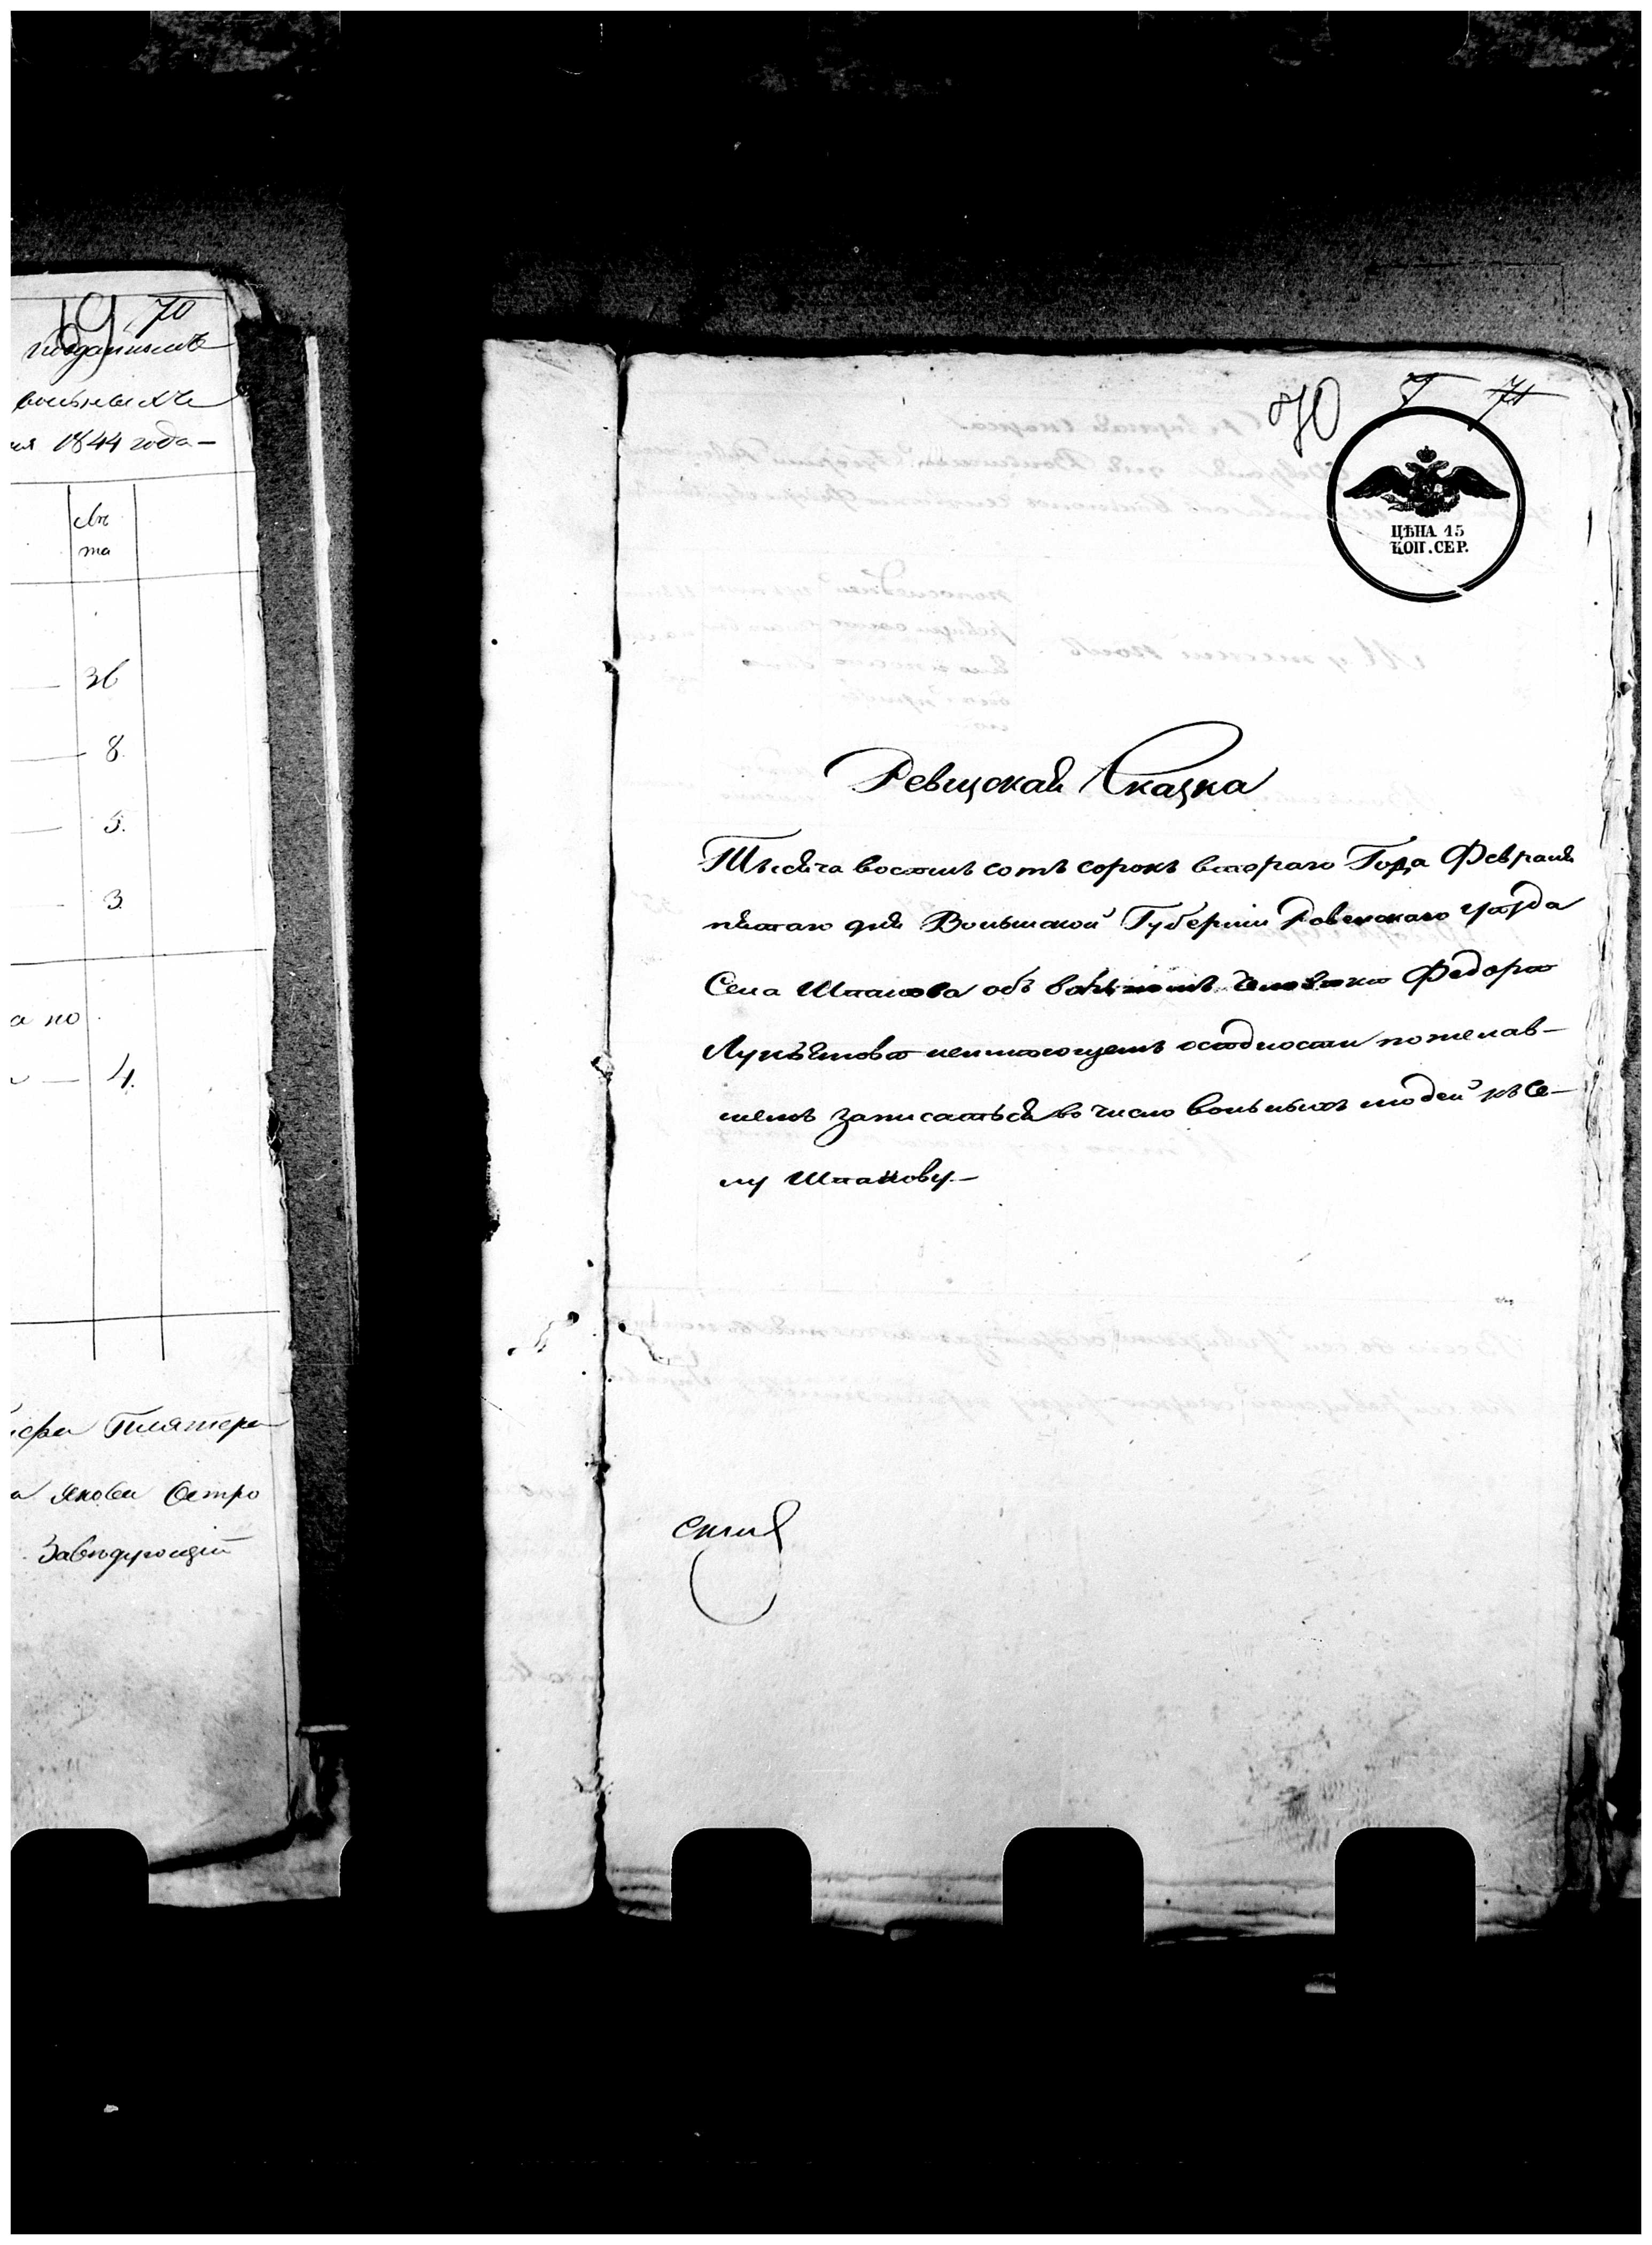 69 70
вольныхъ
1844 года—
лѣ
та
36
8.
5.
3
а но
4.
Плятера
а Якова Остро
Завѣдующій
70 71
ЦѢНА 15
КОП. СЕР.
Ревизская Сказка
Тысяча восемь сотъ сорокъ втораго Года Февраля
пятаго дня Волынской Губерніи Ровенскаго уѣзда
Села Шпанова объ вольномъ человѣкѣ Федорѣ
Лукьянове неимеющемъ оседлости пожелав-
шемъ записаться во число вольныхъ людей къ Се-
лу Шпанову.—